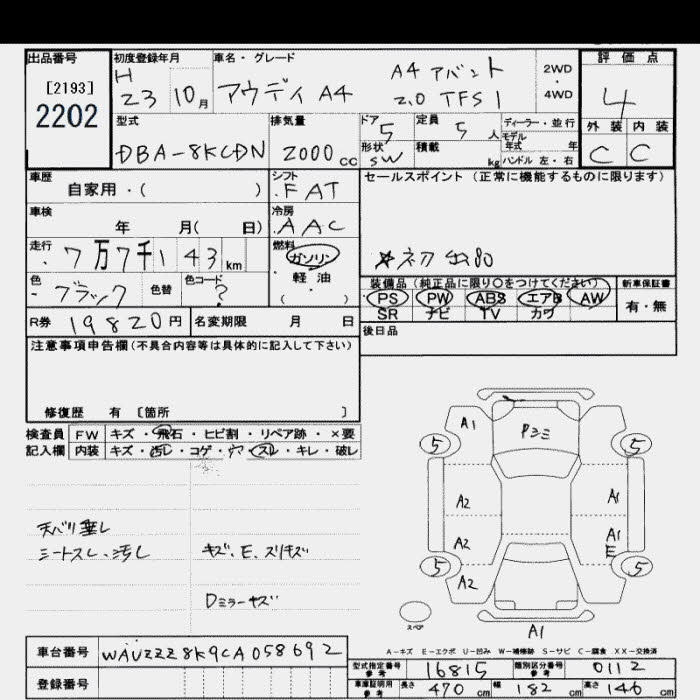 出品番号
[2193]
2202
初度登録年月
H
23 10月
車名・グレード
アウディ A4
A4 アバント
2.0 TFSI
2WD
・
4WD
評価点
4
外装 内装
C C
型式
DBA-8KCDN
排気量
2000cc
ドア
5
定員
5人
形状
SW
積載
kg
ディーラー・並行
モデル
年式 年
ハンドル 左・右
車歴
自家用・( )
シフト
FAT
セールスポイント (正常に機能するものに限ります)
車検
年 月( 日)
冷房
AAC
走行
7万7千143km
燃料
ガソリン
軽油
・
( )
色
ブラック
色替
色コード
?
装備品 (純正品に限り○をつけてください)
PS PW ABS エアB AW
SR ナビ TV カワ
新車保証書
有・無
R券 19820円
名変期限 月 日
後日品
注意事項申告欄(不具合内容等は具体的に記入して下さい)
修復歴 有 〔箇所 〕
検査員
記入欄
FW キズ・飛石・ヒビ割・リペア跡・×要
内装 キズ・汚レ・コゲ・穴・スレ・キレ・破レ
シートスレ、汚レ
キズ、E、スリキズ
Dミラーキズ
A1
5 5
A2 A1
A2 A1
E
5 5
A2
スペア
A1
A-キズ E-エクボ U-凹み W-補修跡 S-サビ C-腐食 XX-交換済
車台番号 WAUZZZ8K9CA058692
登録番号
型式指定番号
参考
16815
類別区分番号
参考
0112
車庫証明用
参考
長さ 470cm 幅 182cm 高さ 146cm